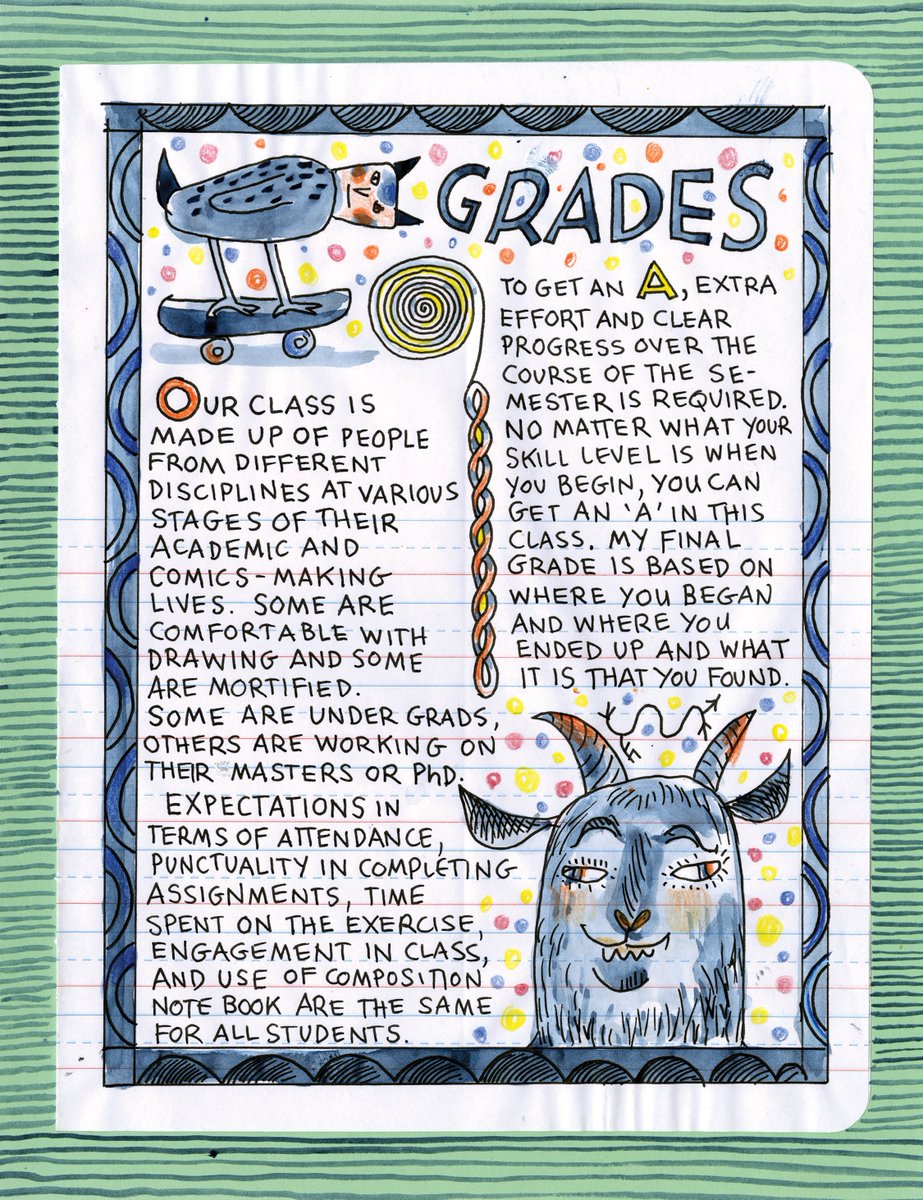 GRADES
OUR CLASS IS
MADE UP OF PEOPLE
FROM DIFFERENT
DISCIPLINES AT VARIOUS
STAGES OF THEIR
ACADEMIC AND
COMICS-MAKING
LIVES. SOME ARE
COMFORTABLE WITH
DRAWING AND SOME
ARE MORTIFIED.
SOME ARE UNDER GRADS,
OTHERS ARE WORKING ON
THEIR MASTERS OR PhD.
EXPECTATIONS IN
TERMS OF ATTENDANCE,
PUNCTUALITY IN COMPLETING
ASSIGNMENTS, TIME
SPENT ON THE EXERCISE,
ENGAGEMENT IN CLASS,
AND USE OF COMPOSITION
NOTE BOOK ARE THE SAME
FOR ALL STUDENTS.
TO GET AN A, EXTRA
EFFORT AND CLEAR
PROGRESS OVER THE
COURSE OF THE SE-
MESTER IS REQUIRED.
NO MATTER WHAT YOUR
SKILL LEVEL IS WHEN
YOU BEGIN, YOU CAN
GET AN 'A' IN THIS
CLASS. MY FINAL
GRADE IS BASED ON
WHERE YOU BEGAN
AND WHERE YOU
ENDED UP AND WHAT
IT IS THAT YOU FOUND.